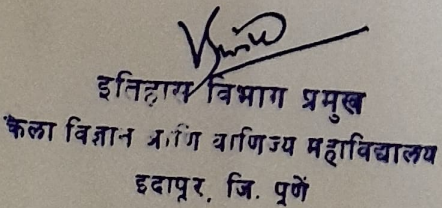 इतिहास विभाग प्रमुख
कला विज्ञान आणि वाणिज्य महाविद्यालय
इदापूर, जि. पूणें